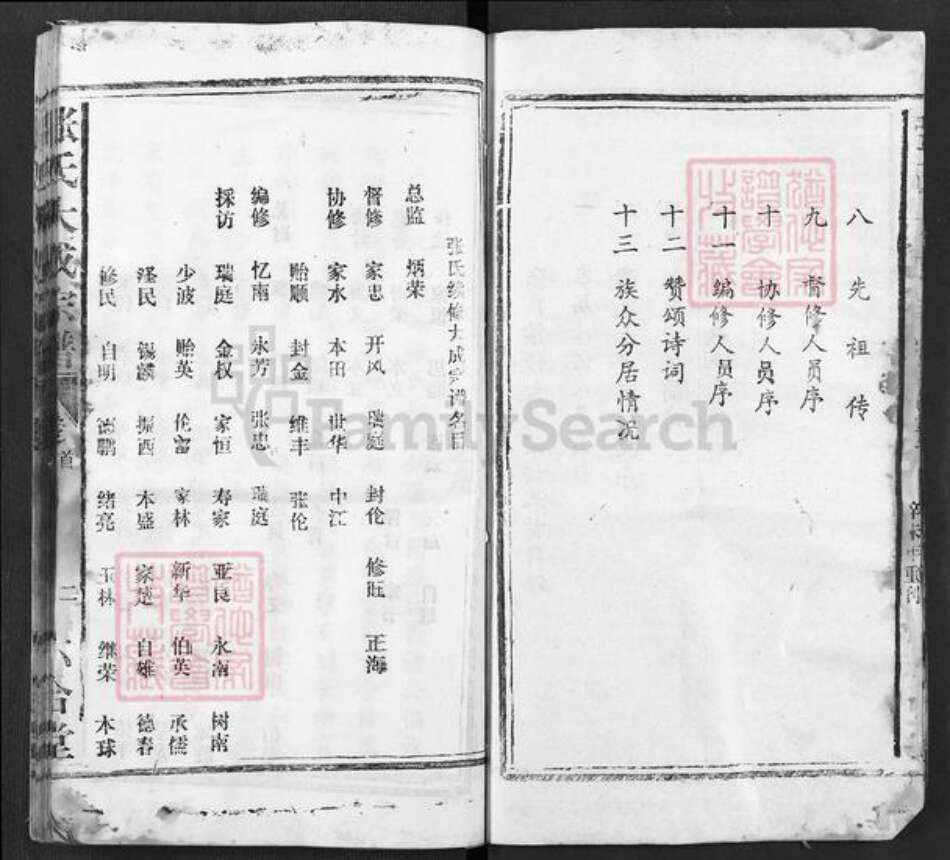 八 先祖传
九 督修人员序
十 协修人员序
十一 编修人员序
十二 赞颂诗词
十三 族众分居情况
张氏续修大成宗谱名目
总监 炳荣
督修 家忠 开风 瑞庭 封伦 修旺 正海
协修 家水 本田 世华 中江
贻顺 封金 维丰 张伦
编修 忆南 永芳 张忠 瑞庭
採访 瑞庭 金权 家恒 寿家 亚良 永南 树南
少波 贻英 伦富 家林 新华 伯英 承儒
泽民 锡麟 振西 本盛 家楚 自雄 德春
修民 自明 德鹏 绪亮 玉林 继荣 本球
张氏大成宗谱
首
二
FamilySearch